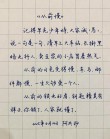 《从前慢》
记得早先少年时,大家诚诚恳恳,说一句,是一句,清早上火车站,长街黑暗无行人,卖豆浆的小店冒着热气。
从前的日色变得慢,车,马,邮件都慢,一生只够爱一个人。
从前的锁也好看,钥匙精美有样子,你锁了,人家就懂了。